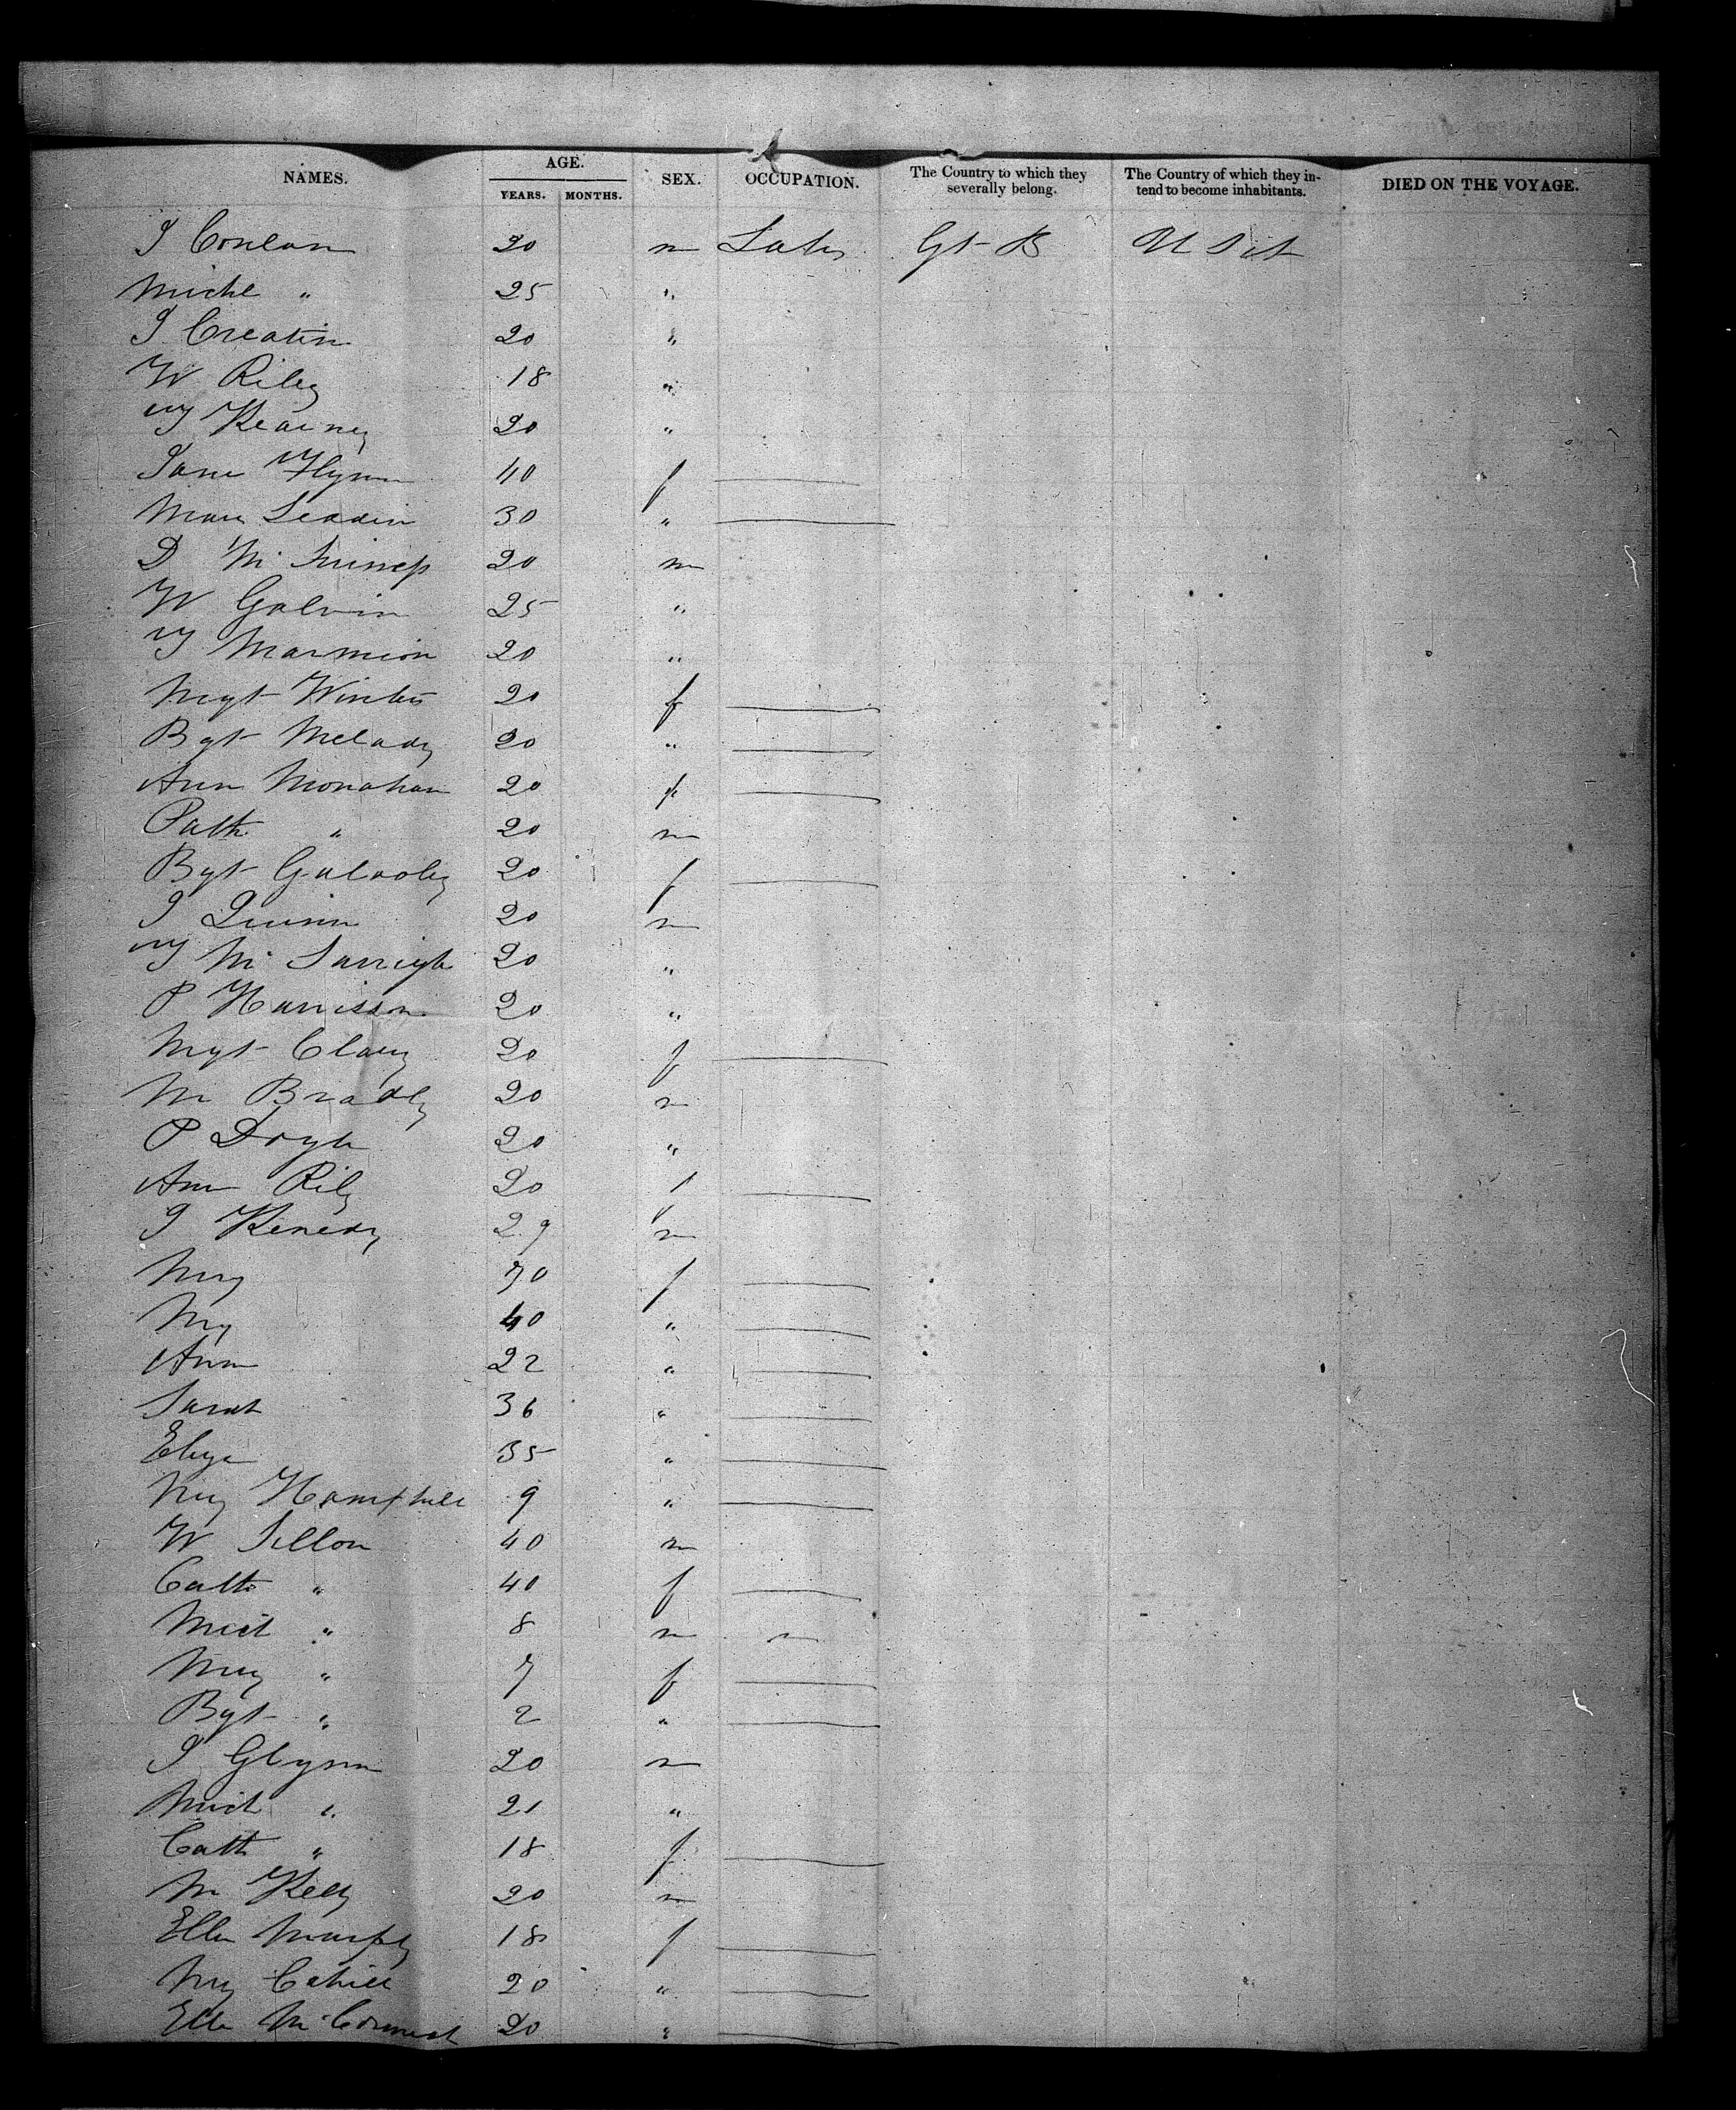 NAMES. AGE. YEARS. MONTHS. SEX. OCCUPATION. The Country to which they severally belong. The Country of which they intend to become inhabitants. DIED ON THE VOYAGE.
J Conlan 20 m Gt B U St
Michl " 25 "
J 20 "
W Riley 18 "
Kearney 20 "
Jane Flynn 40 f
30 "
D 20 m
W Galvin 25 "
Marmion 20 "
Mgt Winters 20 f
Bgt Melady 20 "
Ann Monahan 20 f
Patk " 20 m
Bgt 20 f
J Quinn 20 m
20 "
P Harrison 20 "
Mgt Clary 20 f
M Bradly 20 m
P Doyle 20 "
Ann Rily 20 f
J Kenedy 29 m
My 70 f
My 40 "
Ann 22 "
Sarah 36 "
Eliza 35 "
My Hamphill 9 "
W 40 m
Cath " 40 f
Mich " 8 m
My " 7 f
Bgt " 2 "
J Glynn 20 m
Mich " 21 "
Cath " 18 f
M Kelly 20 m
Ellen Murphy 18 f
My Cahill 20 "
Ellen McCormick 20 "